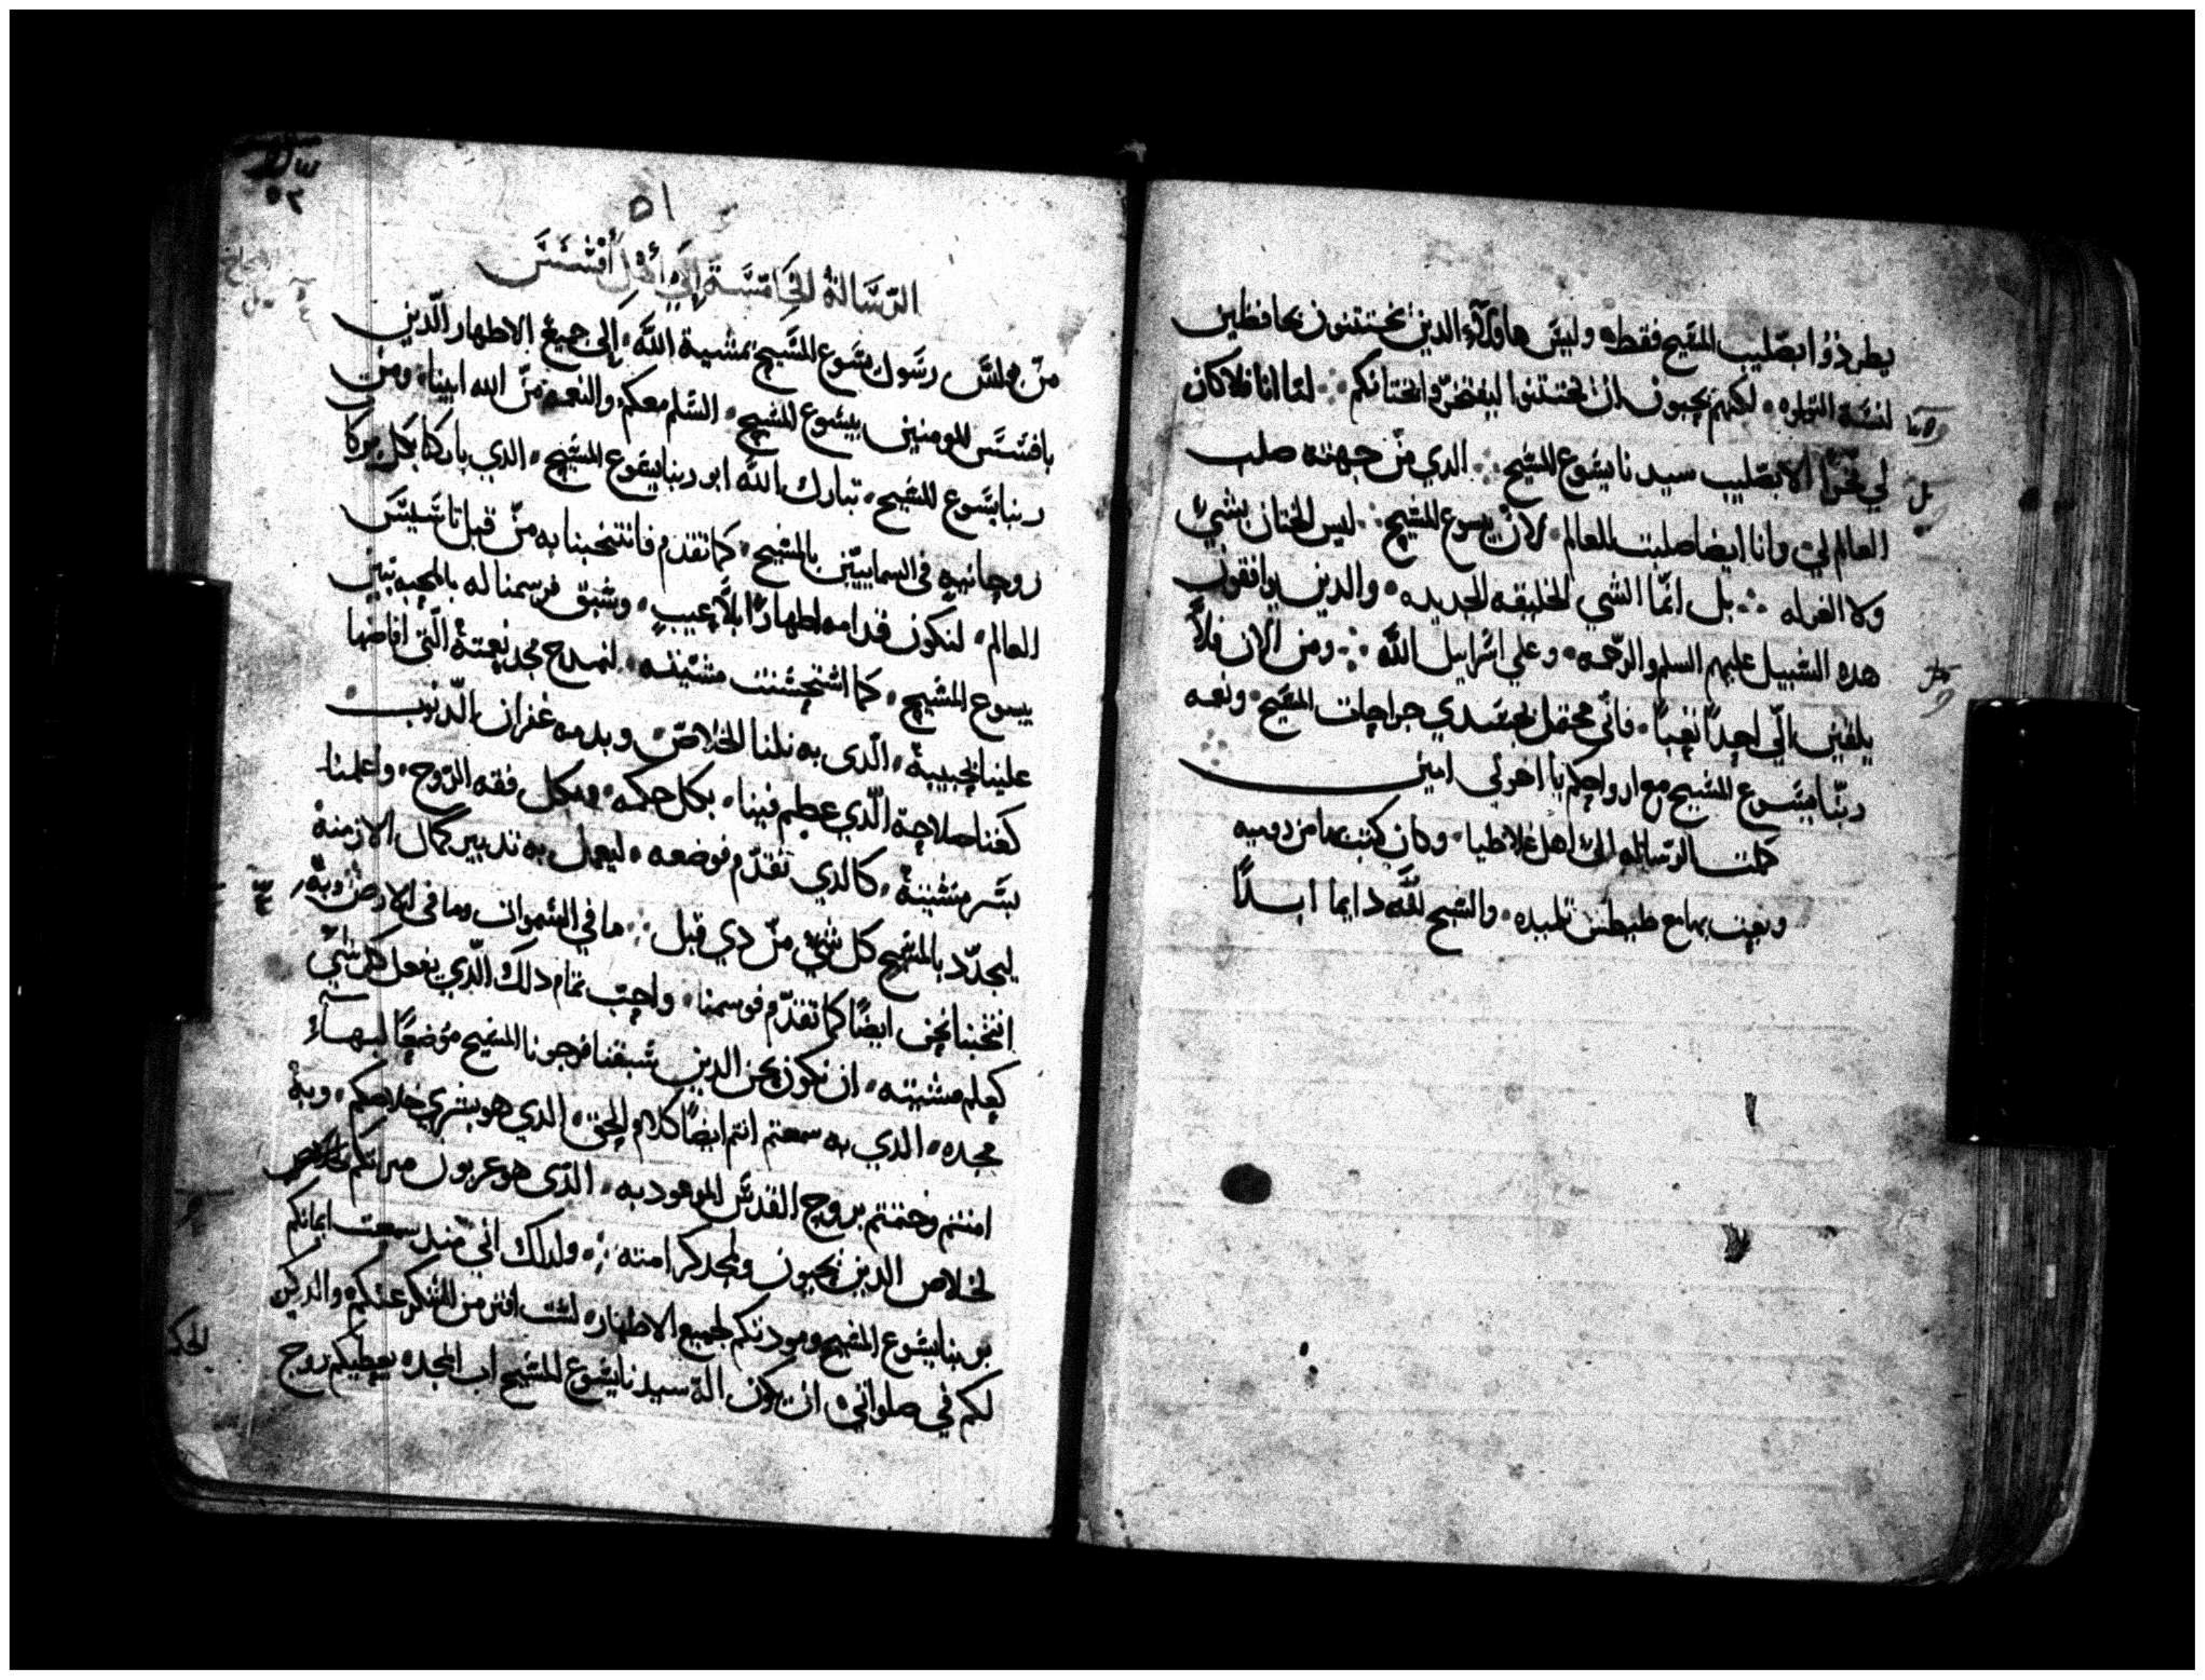 يطردوا بصليب المسيح فقط ٠ وليس هاولآء الدين يختتنون بحافظين
لسنة التوراه ٠ لكنهم يحبون ان تختتنوا ليفتخروا بختانكم ∴ لما انا فلا كان
لي فخرًا الا بصليب سيدنا يسوع المسيح ∴ الدي من جهته صلب
العالم لي وانا ايضا صلبت للعالم ٠ لان يسوع المسيح ∴ ليس الختان بشيء
ولا الغرله ∴ بل انما الشي الخليقه الجديده ٠ والدين يوافقون
هده السبيل عليهم السلم والرحمه ٠ وعلي اسراييل الله ∴ ومن الان فلا
يلقين الّي احدًا تعبًا ٠ فاني محتمل بجسدي جراحات المسيح ٠ ونعمه
ربّنا يسوع المسيح مع ارواحكم يا اخوتي امين
كملت الرساله الى اهل غلاطيا ٠ وكان كتب بها من روميه
وبعث بها مع طيطس تلميده ٠ والسبح لله دايما ابدًا
٥١
الرّسَالة الخَامسَة إلى أهل أفسَسَ
من بولس رسَول يسَوع المسَيح بمشية الله ٠ إلى جميع الاطهار الّدين
بافسَسَ المومنين بيسوع المسيح ٠ السّلم معكم والنعمه منّ الله ابينا ٠ ومن
ربنا يسَوع المسيح ٠ تبارك الله ابو ربنا يسوع المسيح ٠ الدي باركنا بكل بركا
روحانيه في السمايّين بالمسيح ٠ كما تقدم فانتخبنا به منّ قبل تاسَيسَ
العالم ٠ لنكون قدامه اطهارًا بلا عيب ٠ وسبق فرسمنا له بالمحبه بنين
بيسوع المسيح ٠ كما استحسنت مشيته ٠ لنمدح مجد نعمتهُ الّتي افاضها
علينا بحبيبهُ ٠ الّدى به نلنا الخلاصّ ٠ وبدمه غفران الّدنوب
كغنا صلاحهُ الّدي عظم فينا ٠ بكل حكمه ٠ وبكل فقه الرّوح ٠ واعلمنا
بسَر مشيتهُ ٠ كالدي تقدّم فوضعه ٠ ليعمل به تدبير كمال الازمنهُ
ليجدّد بالمسيح كل شيٍ منّ دي قبل ∴ ما في السَموات وما في الارض ٠ وبهُ
انتخبنا نحن ايضًا كما تقدّم فرسمنا ٠ واحبّ تمام دلك الّدي يفعل كل شيٍ
كعلم مشيته ٠ ان نكون نحن الدين سَبقنا فرجونا المسيح موضعًا لبهآء
مجده ٠ الدي به سمعتم انتم ايضًا كلام الحق ٠ الدي هو بشري خلاصكم ٠ وبهُ
امنتم وختمتم بروح القدسَ الموعود به ٠ الدّى هو عربون ميراتكم
لخلاص الدين يحيون ولمجد كرامته ∴ ولدلك اني مند سمعت ايمانكم
بربنا يسوع المسيح ومودتكم لجميع الاطهار ٠ لست افتر من الشكر عنكم ٠ والدكر
لكم في صلواتي ٠ ان يكون الهَ سيدنا يسَوع المسَيح اب المجد ٠ يعطيكم روح